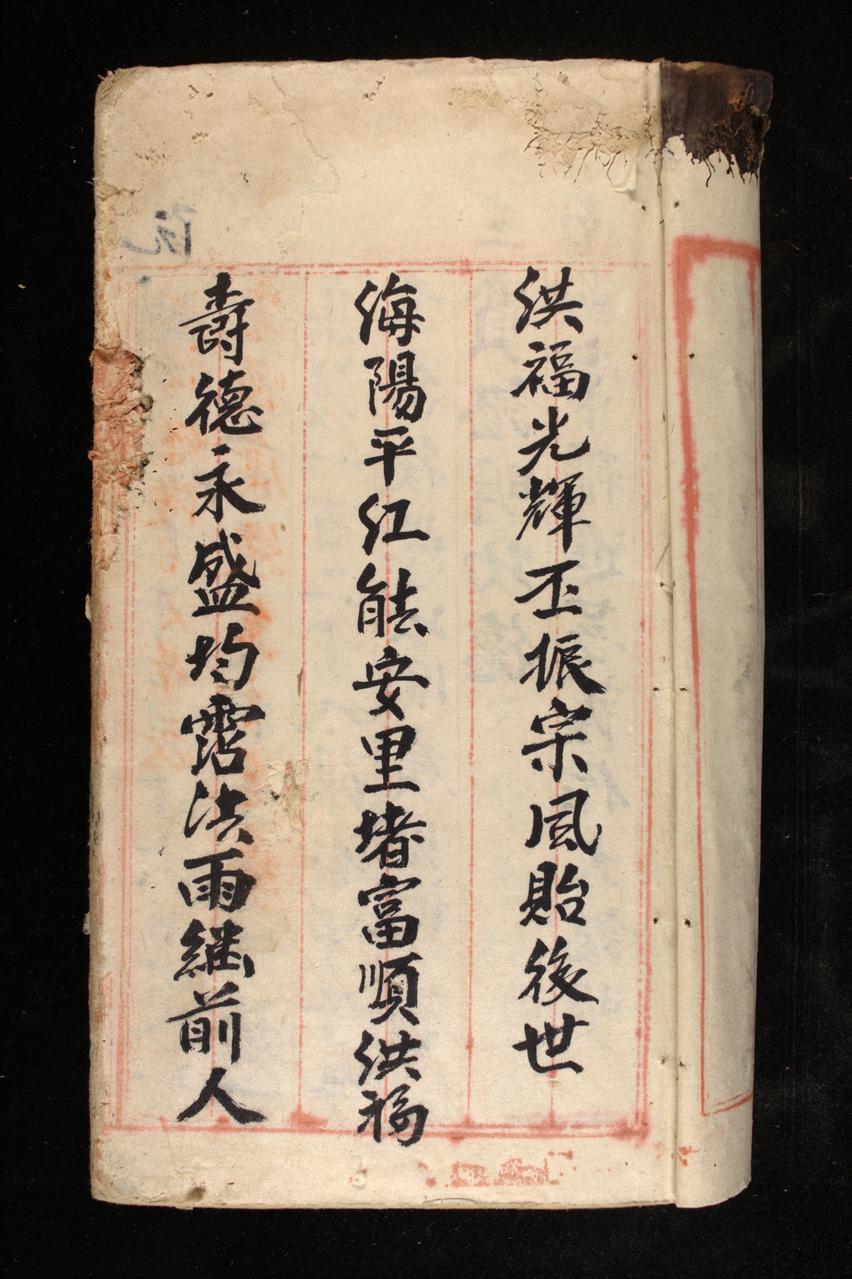 洪福光輝丕振宗風貽後世
海陽平江能安里堵富順洪福
壽德永盛均霑法雨継前人